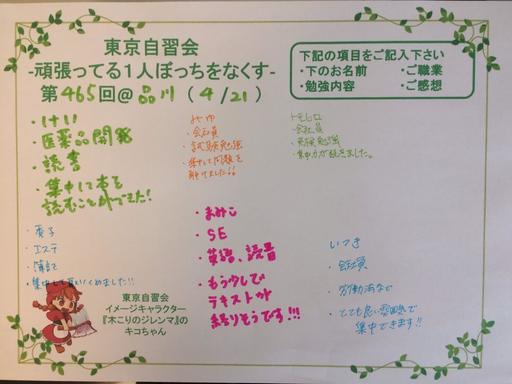 東京自習会
-頑張ってる1人ぼっちをなくす-
第465回@品川(4/21)
下記の項目をご記入下さい
・下のお名前 ・ご職業
・勉強内容 ・ご感想
・けい
・医薬品開発
・読書
・集中して本を
読むことができた!
みゆ
・会社員
・試験勉強
・集中して問題を
解けました!!
トモヒロ
・会社員
・集中力が続きました。
・英子
・エステ
・簿記
・まみこ
・SE
・英語、読書
・もう少しで
テキストが
終りそうです!!!
いつき
・会社員
・とても良い雰囲気で
集中できます!!
東京自習会
イメージキャラクター
『木こりのジレンマ』の
キコちゃん